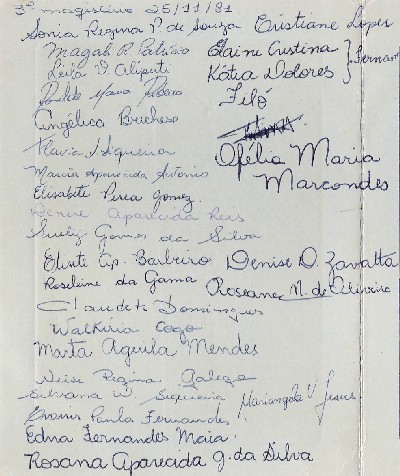 3º magistério 25/11/81
Sonia Regina P. de Souza Cristiane Lopes
Magali R. Patrício Elaine Cristina
Leila V. Kátia Dolores } Fernan
Maria Filó
Angélica
Flavia Siqueira Ofélia Maria
Marcia Aparecida Antonio Marcondes
Elisabete Perea Gomez
Denise Aparecida Reis
Suely Gomes da Silva
Elizete Ap. Barbeiro Denise D. Zavatta
Roseleine da Gama Roseane M. de Oliveira
Claudete Domingues
Walkiria Cogo
Marta Aguila Mendes
Neise Regina Galego
Silvana W. Siqueira Mariangela V. Jesus
Paula Fernandes
Edna Fernandes Maia
Rosana Aparecida G. da Silva